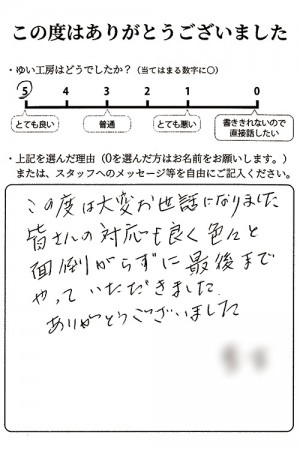 この度はありがとうございました
・ゆい工房はどうでしたか?(当てはまる数字に〇)
5 4 3 2 1 0
とても良い 普通 とても悪い 書ききれないので
直接話したい
・上記を選んだ理由(0を選んだ方はお名前をお願いします。)
または、スタッフへのメッセージ等を自由にご記入ください。
この度は大変お世話になりました
皆さんの対応も良く色々と
面倒がらずに最後まで
やっていただきました.
ありがとうございました